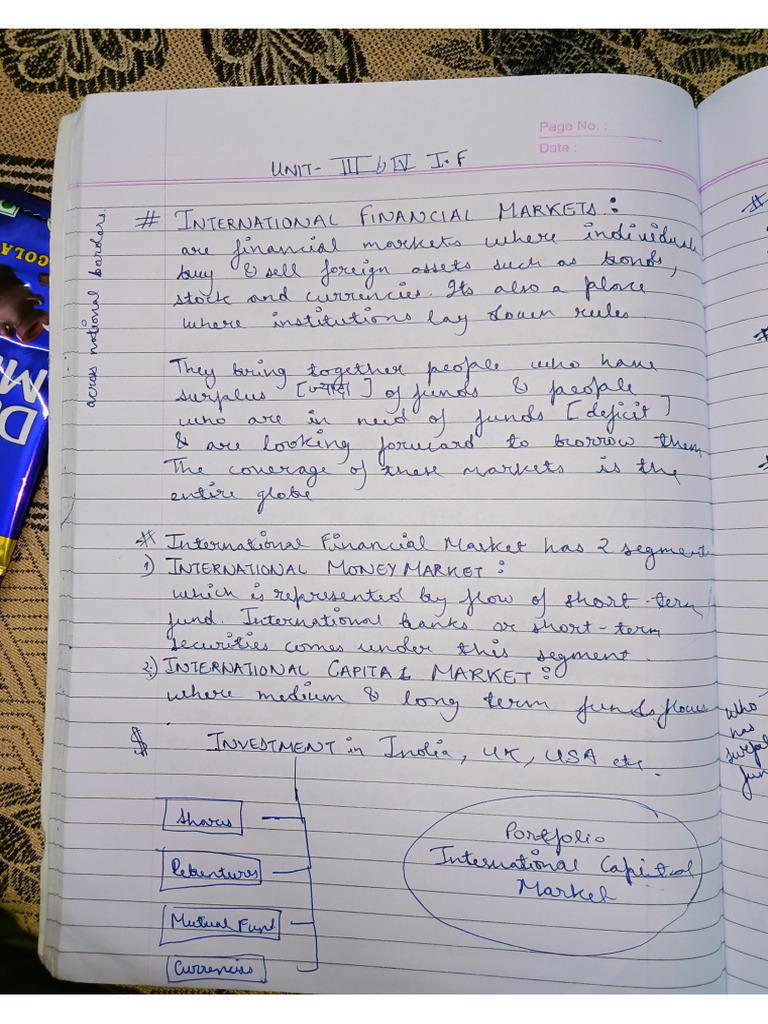 Page No. :
Date :
UNIT- III & IV I.F
# INTERNATIONAL FINANCIAL MARKETS :
are financial markets where individuals
buy & sell foreign assets such as bonds,
stock and currencies. Its also a place
where institutions lay down rules
across national borders.
They bring together people who have
surplus [ज्यादा] of funds & people
who are in need of funds [deficit]
& are looking forward to borrow them
The coverage of these markets is the
entire globe
# International Financial Market has 2 segment
1) INTERNATIONAL MONEY MARKET :
which is represented by flow of short-term
fund. International banks or short-term
securities comes under this segment.
2) INTERNATIONAL CAPITAL MARKET :
where medium & long term funds flows
$ INVESTMENT in India, UK, USA etc.
Shares
Debentures
Mutual Fund
Currencies
Portfolio
International Capital
Market
who
has